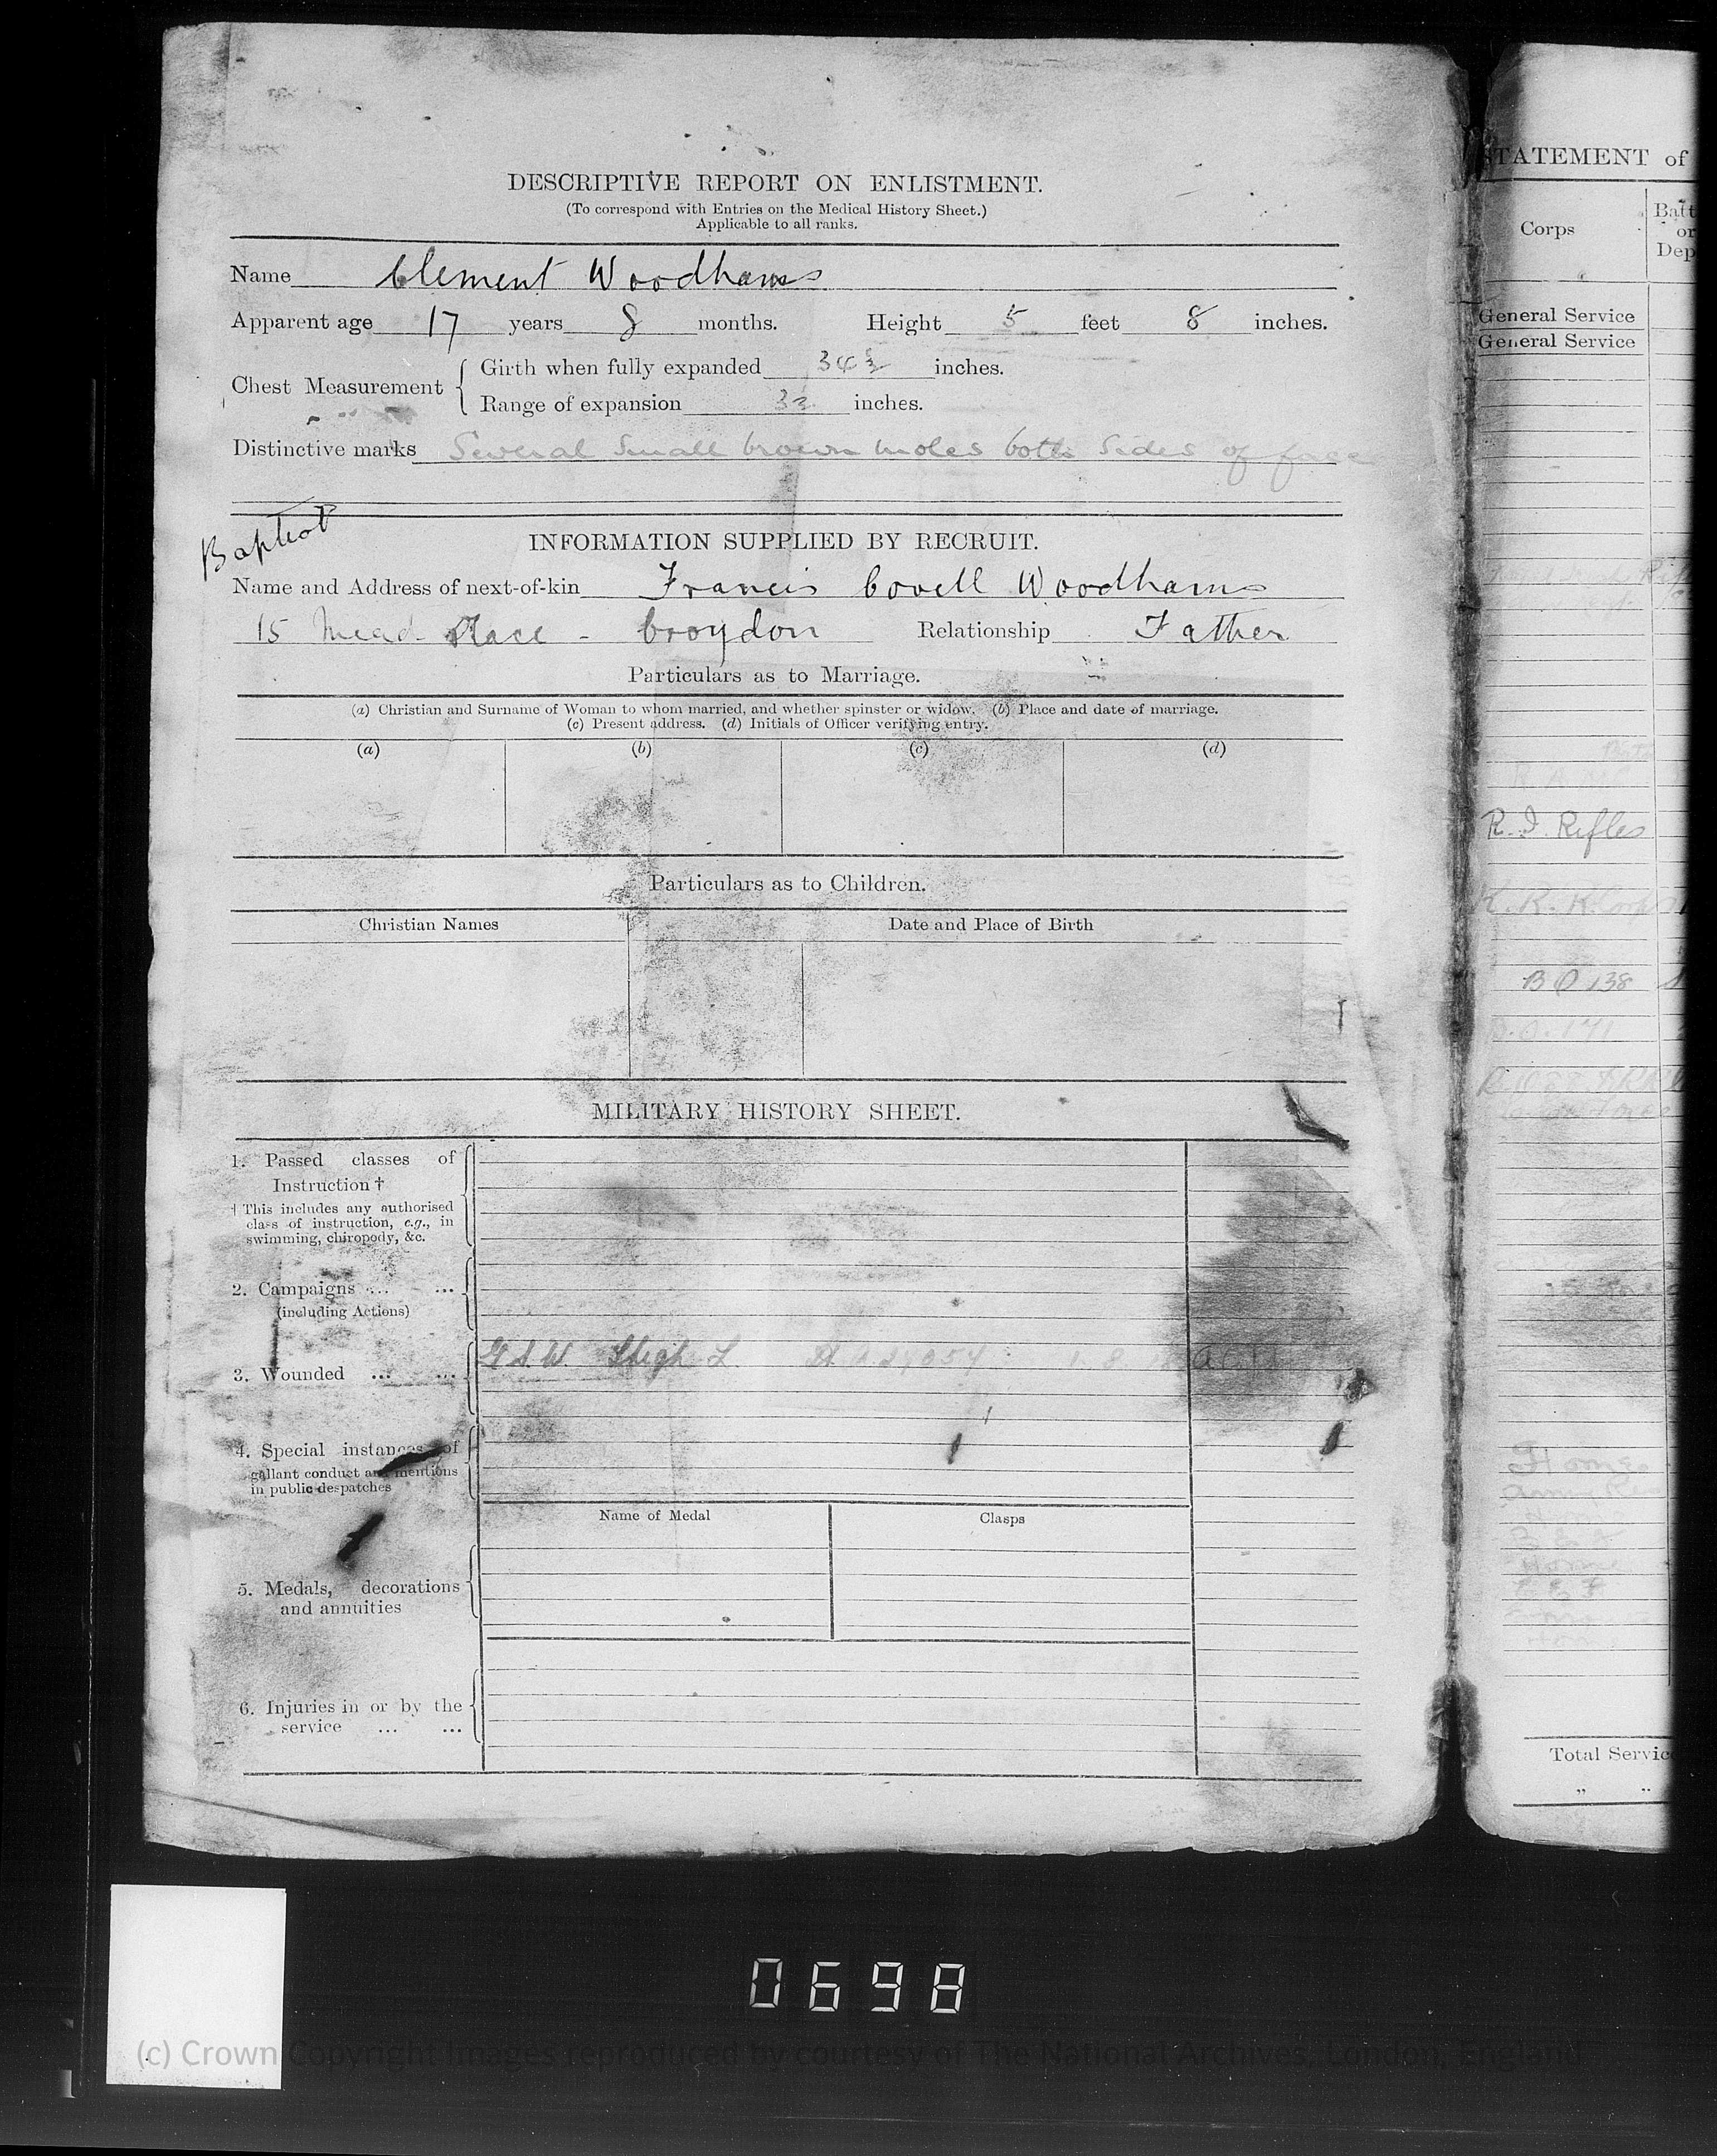 DESCRIPTIVE REPORT ON ENLISTMENT.
(To correspond with Entries on the Medical History Sheet.)
Applicable to all ranks.
Name Clement Woodhams
Apparent age 17 years 8 months. Height 5 feet 8 inches.
Chest Measurement
Girth when fully expanded 34½ inches.
Range of expansion inches.
Distinctive marks Several Small brown moles both Sides of face
Baptist
INFORMATION SUPPLIED BY RECRUIT.
Name and Address of next-of-kin Francis Covell Woodhams
15 Mead Place - Croydon Relationship Father
Particulars as to Marriage.
(a) Christian and Surname of Woman to whom married, and whether spinster or widow. (b) Place and date of marriage.
(c) Present address. (d) Initials of Officer verifying entry.
(a) (b) (c) (d)
Particulars as to Children.
Christian Names Date and Place of Birth
MILITARY HISTORY SHEET.
1. Passed classes of
Instruction †
† This includes any authorised
class of instruction, e.g., in
swimming, chiropody, &c.
2. Campaigns ... ...
(including Actions)
G S W Thigh L
3. Wounded ... ...
4. Special instances of
gallant conduct and mentions
in public despatches
Name of Medal Clasps
5. Medals, decorations
and annuities
6. Injuries in or by the
service ... ...
STATEMENT of
Corps
Batt
or
Dep
General Service
General Service
R. I. Rifles
Total Servic
" "
0698
(c) Crown Copyright Images reproduced by courtesy of The National Archives, London, England